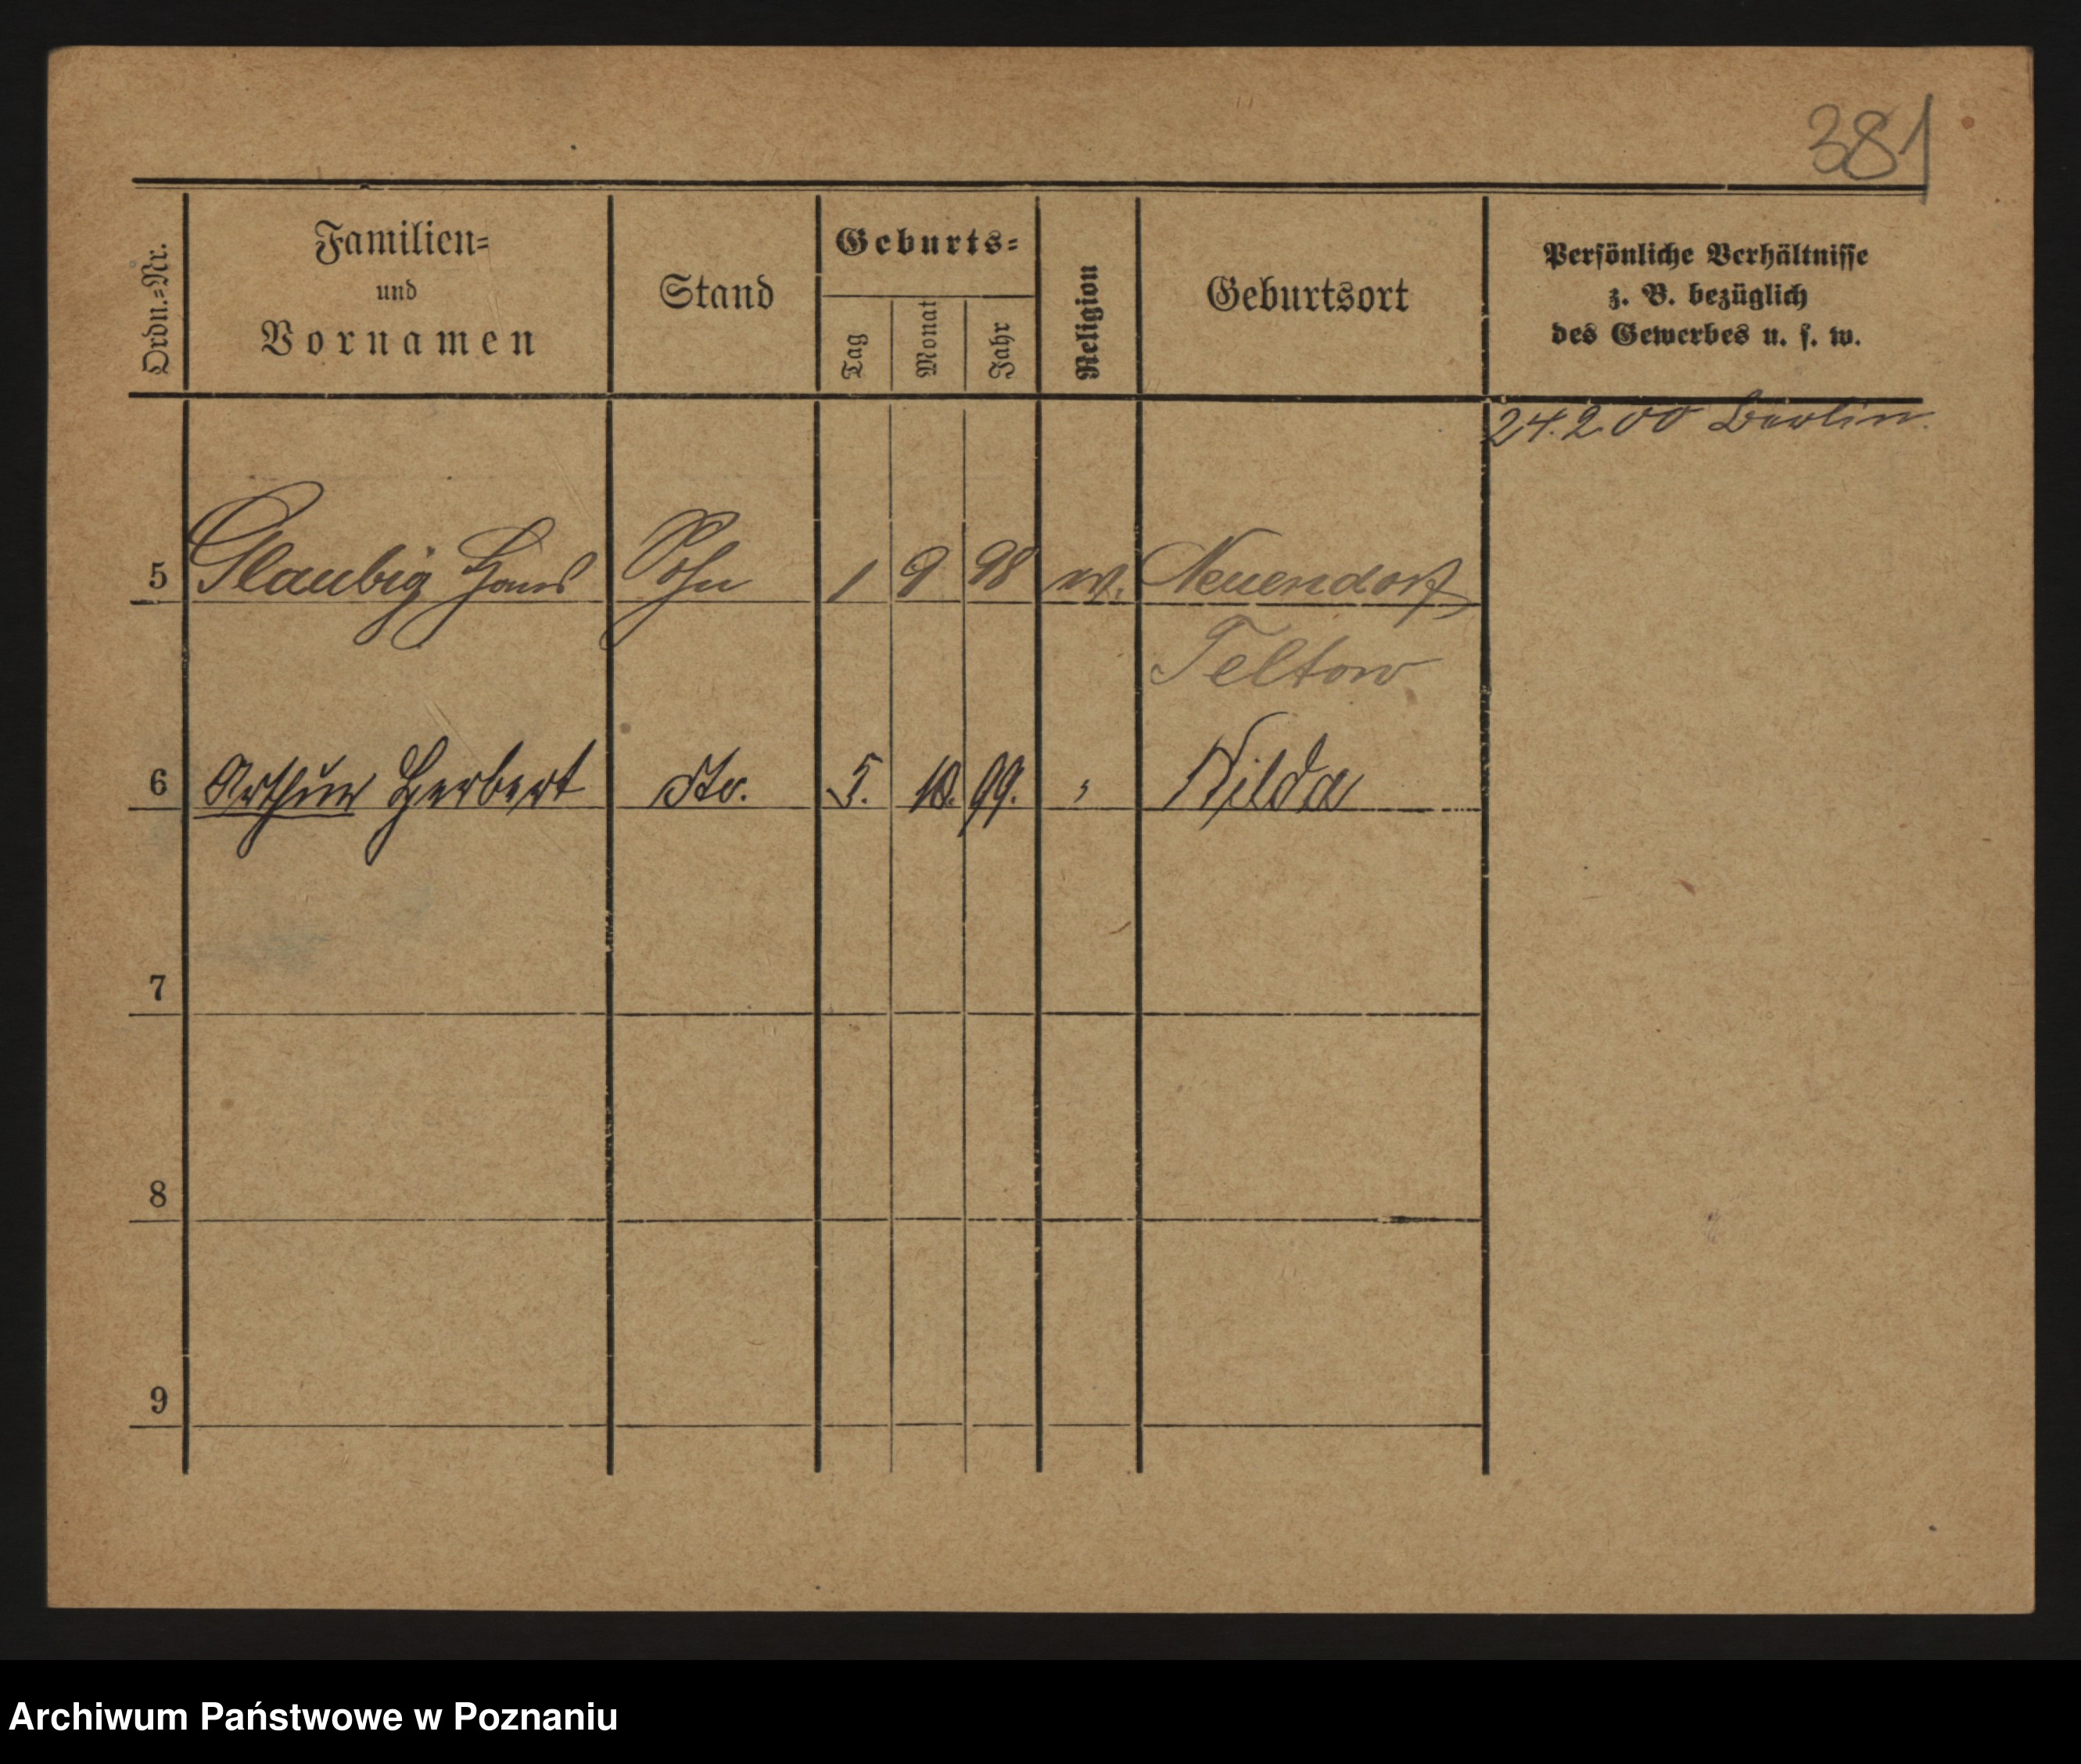 381
Ordn.-Nr.
Familien-
und
Vornamen
Stand
Geburts-
Tag
Monat
Jahr
Religion
Geburtsort
Persönliche Verhältnisse
z. B. bezüglich
des Gewerbes u. s. w.
24.2.00 Berlin.
5 Glaubig Hans Sohn 1 9 98 Neuendorf,
Teltow
6 Arthur Herbert dto. 5. 10. 99. " Wilda
7
8
9
Archiwum Państwowe w Poznaniu